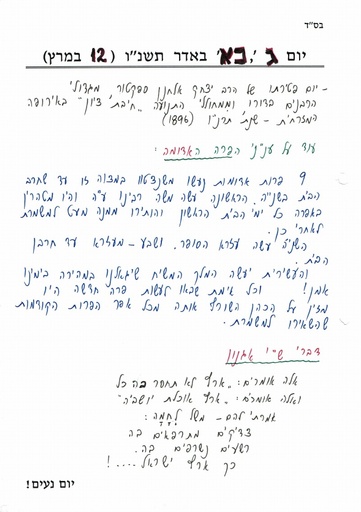 בס"ד
יום ג', כא' באדר תשנ"ו (12 במרץ)
- יום פטירתו של הרב יצחק אלחנן ספקטור מגדולי
הרבנים בדורו וממחוללי התנועה "חיבת ציון" באירופה
המזרחית - שנת תרנ"ו (1896)
עוד על עניני הפרה האדומה:
9 פרות אדומות נעשו משנצטוו במצוה זו עד שחרב
הבית בשניה. הראשונה עשה משה רבינו ע"ה והיו מטהרין
באפרה כל ימי הבית הראשון והותירו ממנה מעט למשמרת
לאחרי כן.
השניה עשה עזרא הסופר. ושבע - מעזרא עד חרבן
הבית.
והעשירית יעשה המלך המשיח שיגאלנו במהירה בימינו
אמן! וכל אימת שבאו לעשות פרה חדשה היו
מזין על הכהן השורף אותה מכל אפר הפרות הקודמות
שהשאירו למשמרת.
דברי ש"י עגנון
אלה אומרים: "ארץ לא תחסר בה כל
ואלה אומרים: "ארץ אוכלת יושביה"
אמרתי להם - משל לחמה:
צדיקים מתרפאים בה
רשעים נשרפים בה.
כך ארץ ישראל....!
יום נעים!